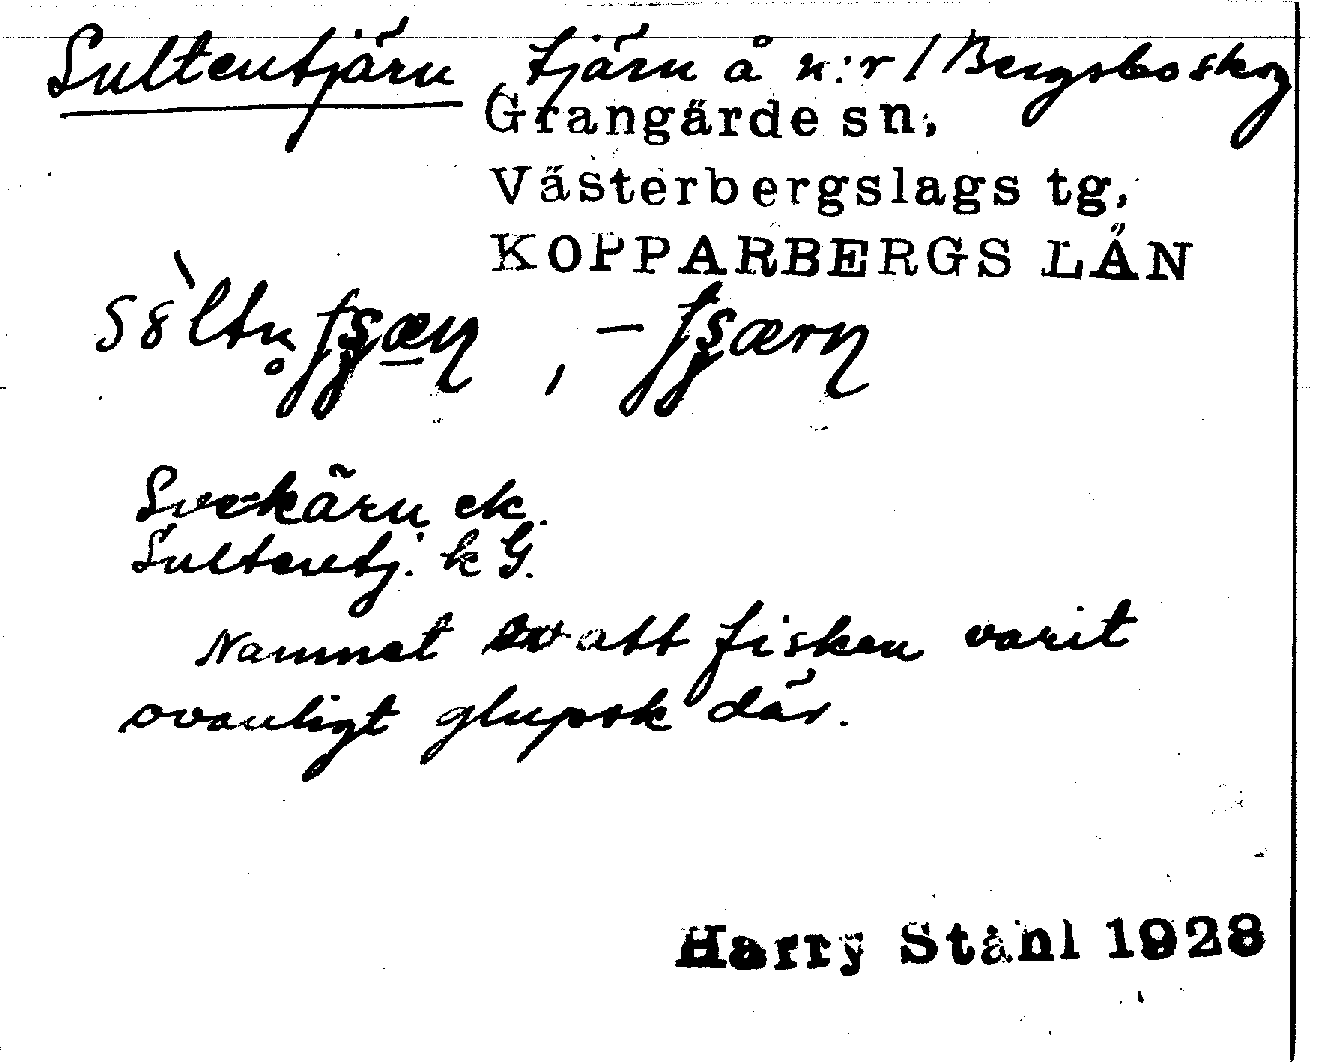 Sultentjärn, tjärn å n:r 1 Bergsboskog
Grangärde sn,
Västerbergslags tg,
KOPPARBERGS LÄN
ek.
Sultentj. k G.
Namnet av att fisken varit
ovanligt glupsk där.
Harry Ståhl 1928